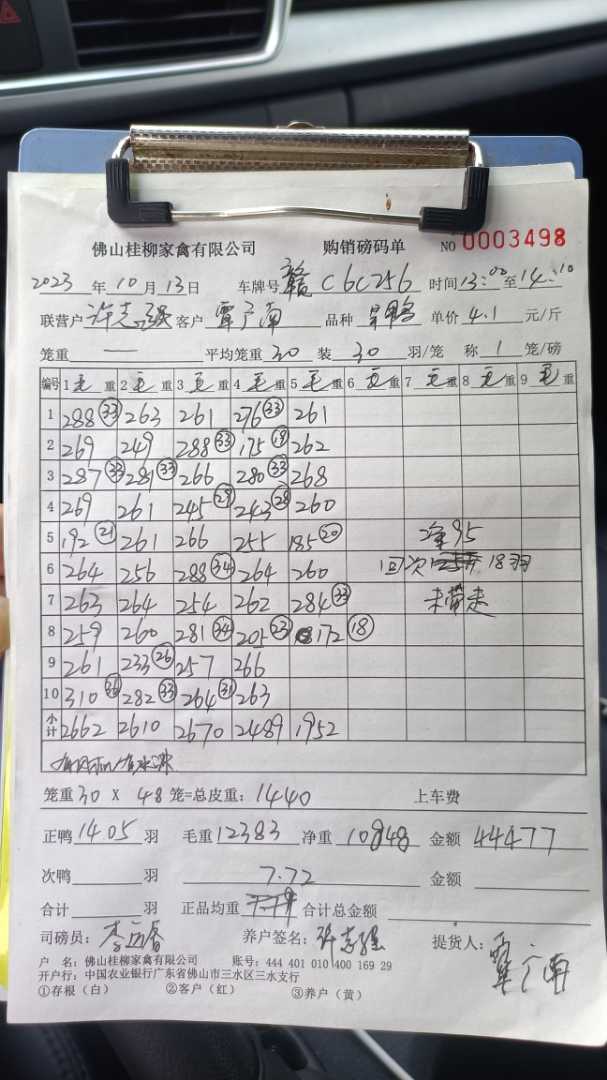 佛山桂柳家禽有限公司 购销磅码单 NO 0003498
2023 年 10 月 13 日 车牌号 赣 C6C256 时间 13:00 至 14:10
联营户 许志强 客户 覃广南 品种 单价 4.1 元/斤
笼重 一 平均笼重 30 装 30 羽/笼 称 1 笼/磅
编号 1 毛 重 2 毛 重 3 毛 重 4 毛 重 5 毛 重 6 毛 重 7 毛 重 8 毛 重 9 毛 重
1 288 33 263 261 276 33 261
2 269 249 288 33 175 19 262
3 287 33 281 33 266 280 33 268
4 269 261 245 29 243 28 260
5 192 21 261 266 255 185 20 净95
6 264 256 288 34 264 260 回次 18羽
7 263 264 254 262 284 33 未带走
8 259 260 281 34 205 23 172 18
9 261 233 26 257 266
10 310 36 282 33 264 31 263
小计 2662 2610 2670 2489 1952
笼重 30 X 48 笼=总皮重: 1440 上车费
正鸭 1405 羽 毛重 12383 净重 10848 金额 44477
次鸭 羽 7.72 金额
合计 羽 正品均重 合计总金额
司磅员: 养户签名: 许志强 提货人: 覃广南
户 名: 佛山桂柳家禽有限公司 账号: 444 401 010 400 169 29
开户行: 中国农业银行广东省佛山市三水区三水支行
①存根(白) ②客户(红) ③养户(黄)